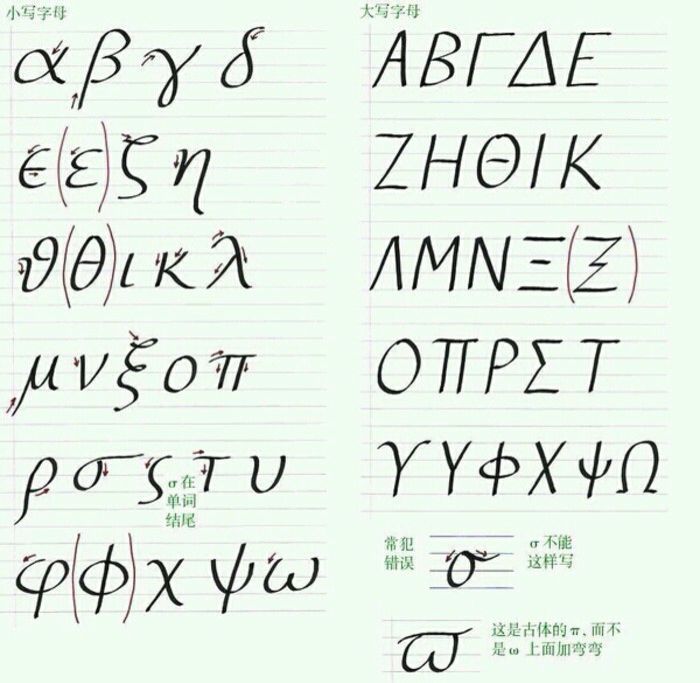 小写字母
α β γ δ
ϵ (ε) ζ η
ϑ (θ) ι κ λ
μ ν ξ ο π
ρ σ ς τ υ
σ在
单词
结尾
φ (ϕ) χ ψ ω
大写字母
Α Β Γ Δ Ε
Ζ Η Θ Ι Κ
Λ Μ Ν Ξ (Ξ)
Ο Π Ρ Σ Τ
ϒ Υ Φ Χ Ψ Ω
常犯
错误
σ
σ不能
这样写
ϖ
这是古体的π,而不
是ω上面加弯弯